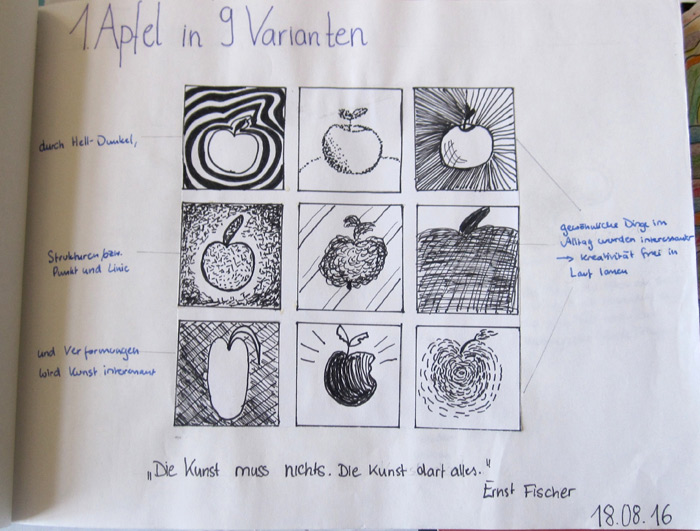 1 Apfel in 9 Varianten
durch Hell-Dunkel,
Strukturen bzw.
Punkt und Linie
und Verformungen
wird Kunst interessant
gewöhnliche Dinge im
Alltag wurden interessant
→ Kreativität frei im
Lauf lassen
„Die Kunst muss nichts. Die Kunst darf alles."
Ernst Fischer
18.08.16